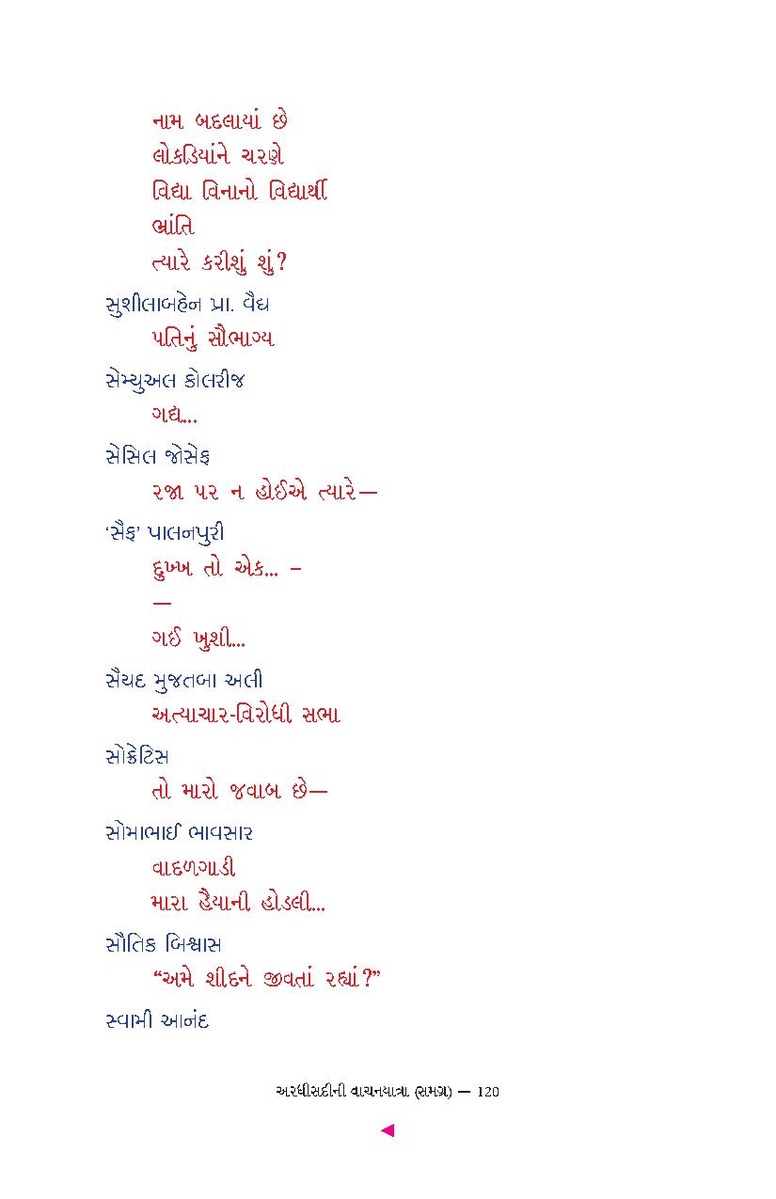 નામ બદલાયાં છે
લોકડિયાંને ચરણે
વિદ્યા વિનાનો વિદ્યાર્થી
ભ્રાંતિ
ત્યારે કરીશું શું?
સુશીલાબહેન પ્રા. વૈદ્ય
પતિનું સૌભાગ્ય
સેમ્યુઅલ કોલરીજ
ગદ્ય...
સેસિલ જોસેફ
રજા પર ન હોઈએ ત્યારે—
‘સૈફ’ પાલનપુરી
દુખ્ખ તો એક... –
—
ગઈ ખુશી...
સૈયદ મુજતબા અલી
અત્યાચાર-વિરોધી સભા
સોક્રેટિસ
તો મારો જવાબ છે—
સોમાભાઈ ભાવસાર
વાદળગાડી
મારા હૈયાની હોડલી...
સૌતિક બિશ્વાસ
“અમે શીદને જીવતાં રહ્યાં?”
સ્વામી આનંદ
અરધીસદીની વાચનયાત્રા (સમગ્ર) — 120